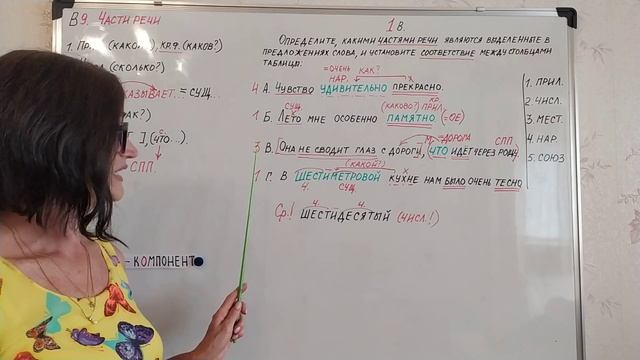 В9. Части речи
1. Пр. (какой?), кр.ф. (каков?)
(сколько?)
указывает... = сущ...
как?)
], (что...).
→ СПП.
- компонент
1 в.
Определите, какими частями речи являются выделенные в
предложениях слова, и установите соответствие между столбцами
таблицы.
=очень как?
нар. х
4 А. Чувство удивительно прекрасно.
сущ. (каково?) прил. кр.
1 Б. Лето мне особенно памятно (=ое)
м. =дорога СПП
3 В. [Она не сводит глаз с дороги], (что идёт через рощу).
(какой?) х
1 Г. В шестиметровой кухне нам было очень тесно
ч. сущ.
ч. ч.
Ср.! шестидесятый (числ.!)
1. прил.
2. числ.
3. мест.
4. нар.
5. союз